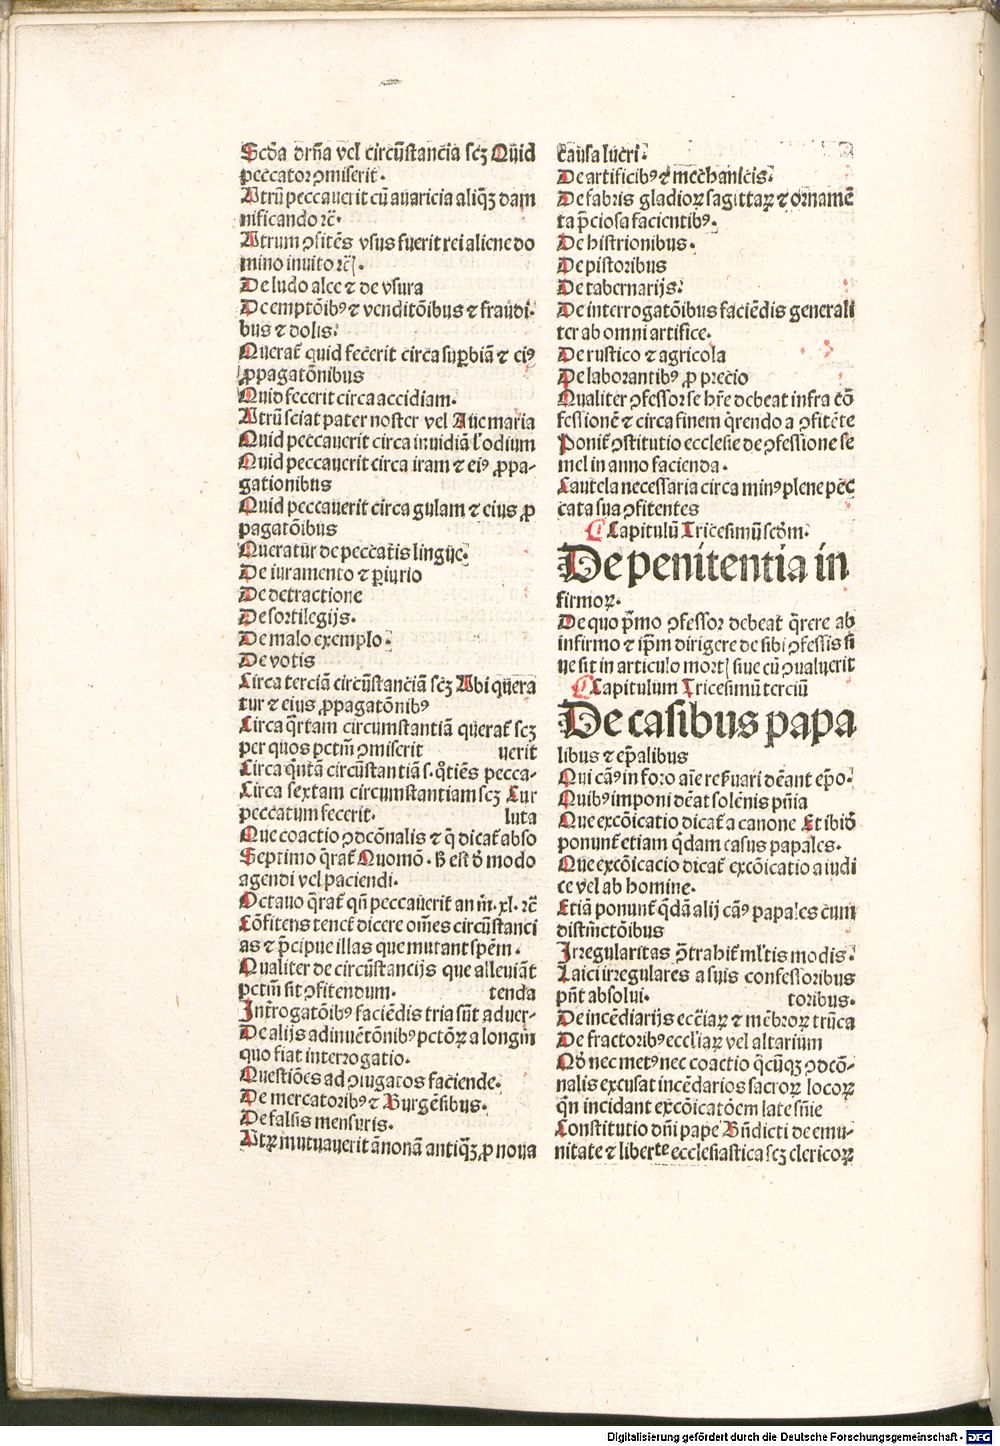 Scd̄a drn̄a vel circūstancia scꝫ Quid
peccator ꝯmiserit.
Utrū peccauerit cū auaricia aliqꝫ dam
nificando ⁊c̄.
Utrum ꝯfitēs vsus fuerit rei aliene do
mino inuito ⁊c̄.
De ludo alee ⁊ de vsura
De emptōibꝰ ⁊ venditōibus ⁊ fraudi-
bus ⁊ dolis.
Querat̄ quid fecerit circa suꝑbiā ⁊ eiꝰ
ꝓpagatōnibus
Quid fecerit circa accidiam.
Utrū sciat pater noster vel Aue maria
Quid peccauerit circa inuidiā l' odium
Quid peccauerit circa iram ⁊ eiꝰ ꝓpa-
gationibus
Quid peccauerit circa gulam ⁊ eius ꝓ
pagatōibus
Queratur de peccatis lingue.
De iuramento ⁊ ꝑiurio
De detractione
De sortilegijs.
De malo exemplo.
De votis
Circa terciā circūstanciā scꝫ Ubi quera
tur ⁊ eius ꝓpagatōnibꝰ
Circa q̄rtam circumstantiā querat̄ scꝫ
per quos pctm̄ ꝯmiserit uerit
Circa q̄ntā circūstantiā s. q̊tiēs pecca-
Circa sextam circumstantiam scꝫ Cur
peccatum fecerit. luta
Que coactio ꝯdcōnalis ⁊ q̄ dicat̄ abso
Septimo q̄rat̄ Quomō. h̄ est d̄ modo
agendi vel paciendi.
Octauo q̄rat̄ qn̄ peccauerit an in̄. xl. ⁊c̄
Cōfitens tenet̄ dicere om̄es circūstanci
as ⁊ p̄cipue illas que mutant spēm.
Qualiter de circūstancijs que alleuiāt
pctm̄ sit ꝯfitendum. tenda
Int̄rogatōibꝰ faciēdis tria sūt aduer-
De alijs adinuētōnibꝰ pctōꝝ a longin
quo fiat interrogatio.
Questiōes ad ꝯiugatos faciende.
De mercatoribꝰ ⁊ Burgēsibus.
De falsis mensuris.
Utꝝ mutuauerit ānonā antiqꝫ ꝓ noua
causa lucri.
De artificibꝰ ⁊ mechanicis.
De fabris gladioꝝ sagittaꝝ ⁊ ornamē
ta p̄ciosa facientibꝰ.
De histrionibus.
De pistoribus
De tabernarijs.
De interrogatōibus faciēdis generali
ter ab omni artifice.
De rustico ⁊ agricola
De laborantibꝰ ꝓ precio
Qualiter ꝯfessor se hr̄e debeat infra cō
fessionē ⁊ circa finem q̄rendo a ꝯfitēte
Ponit̄ ꝯstitutio ecclesie de ꝯfessione se
mel in anno facienda.
Cautela necessaria circa minꝰ plene pec
cata sua ꝯfitentes
Capitulū Tricesimū scd̄m.
De penitentia in
firmoꝝ.
De quo p̄mo ꝯfessor debeat q̄rere ab
infirmo ⁊ ip̄m dirigere de sibi ꝯfessis si
ue sit in articulo mort̄ siue cū ꝯualuerit
Capitulum Tricesimū terciū
De casibus papa
libus ⁊ ep̄alibus
Qui cāꝰ in foro aīe reẜuari dēant ep̄o.
Quibꝰ imponi dēat solēnis pn̄ia
Que excōicatio dicat̄ a canone Et ibid̄
ponunt̄ etiam q̄dam casus papales.
Que excōicacio dicat̄ excōicatio a iudi
ce vel ab homine.
Etiā ponunt̄ q̄dā alij cāꝰ papales cum
distinctōibus
Irregularitas ꝯtrahit̄ ml'tis modis.
Laici irregulares a suis confessoribus
pn̄t absolui. toribus.
De incēdiarijs ecc̄iaꝝ ⁊ mēbroꝝ trūca
De fractoribꝰ eccl'iaꝝ vel altarium
Nō nec metꝰ nec coactio q̄cūqꝫ ꝯdcō-
nalis excusat incēdarios sacroꝝ locoꝝ
q̄n incidant excōicatōem late sn̄ie
Constitutio dn̄i pape Bn̄dicti de emu-
nitate ⁊ liberte ecclesiastica scꝫ clericoꝝ
Digitalisierung gefördert durch die Deutsche Forschungsgemeinschaft - DFG